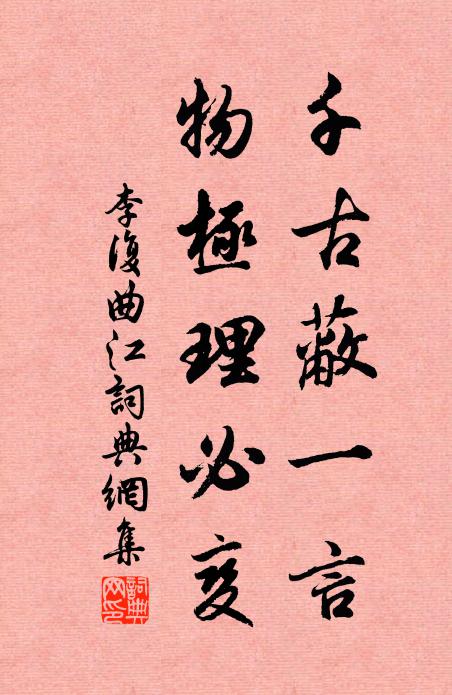 千古蔽一言
物極理必变
李復曲江詞典網集
詞典网印